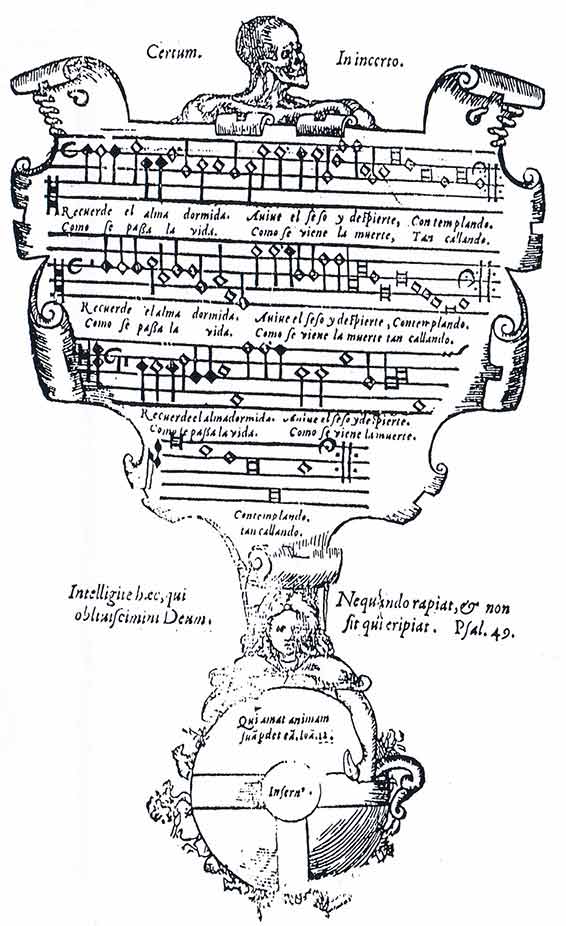 Certum. In incerto.
Recuerde el alma dormida. Auiue el seso y despierte, Contemplando.
Como se passa la vida. Como se viene la muerte, Tan callando.
Recuerde el alma dormida. Auiue el seso y despierte, Contemplando.
Como se passa la vida. Como se viene la muerte tan callando.
Recuerde el alma dormida. Auiue el seso y despierte.
Como se passa la vida. Como se viene la muerte.
Contemplando.
tan callando.
Intelligite hæc, qui
obliuiscimini Deum.
Nequãndo rapiat, & non
sit qui eripiat. Psal. 49.
Qui amat animam
suã pdet eã, Ioã. 12.
Infernº.